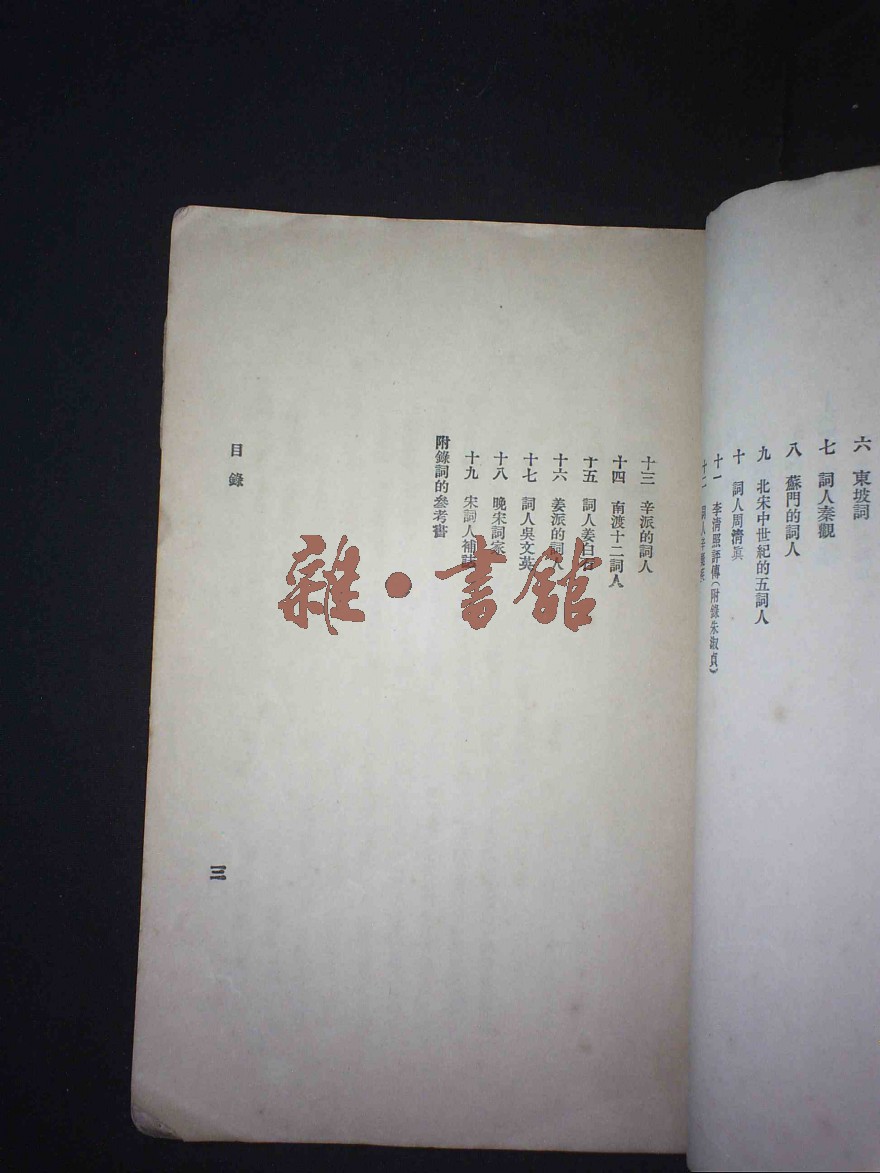 六 東坡詞
七 詞人秦觀
八 蘇門的詞人
九 北宋中世紀的五詞人
十 詞人周清眞
十一 李清照評傳(附錄朱淑貞)
十二 詞人辛棄疾
十三 辛派的詞人
十四 南渡十二詞人
十五 詞人姜白石
十六 姜派的詞人
十七 詞人吳文英
十八 晚宋詞家
十九 宋詞人補誌
附錄詞的參考書
目錄
三
雜·書館